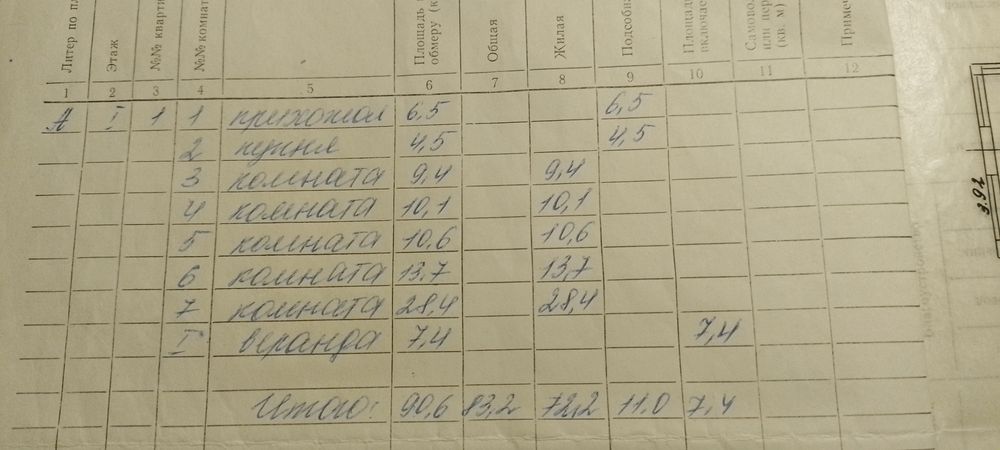 Литер по
Этаж
№№
№№
Площадь
обмеру
Общая
Жилая
Площадь
или
(кв. м)
1 2 3 4 5 6 7 8 9 10 11 12
А I 1 1 прихожая 6,5 6,5
2 кухня 4,5 4,5
3 комната 9,4 9,4
4 комната 10,1 10,1
5 комната 10,6 10,6
6 комната 13,7 13,7
7 комната 28,4 28,4
I веранда 7,4 7,4
Итого: 90,6 83,2 72,2 11,0 7,4
3.92